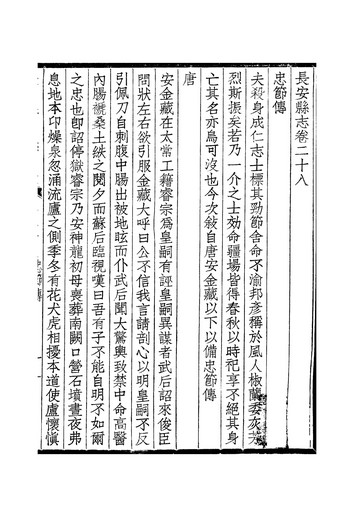 長安縣志卷二十八
忠節傳
夫殺身成仁志士標其勁節舍命不渝邦彥稱於風人椒蘭委灰芳
烈斯振矣若乃一介之士効命疆場皆得春秋以時祀享不絕其身
亡其名亦烏可沒也今次敘自唐安金藏以下以備忠節傳
唐
安金藏在太常工籍睿宗為皇嗣有誣皇嗣異謀者武后詔來俊臣
問狀左右欲引服金藏大呼曰公不信我言請剖心以明皇嗣不反
引佩刀自刺腹中腸出被地眩而仆武后聞大驚輿致禁中命高醫
內腸褫桑土紩之閱夕而蘇后臨視嘆曰吾有子不能自明不如爾
之忠也即詔停獄睿宗乃安神龍初母喪葬南闕口營石墳晝夜弗
息地本卬燥泉忽涌流廬之側季冬有花犬虎相擾本道使盧懷慎